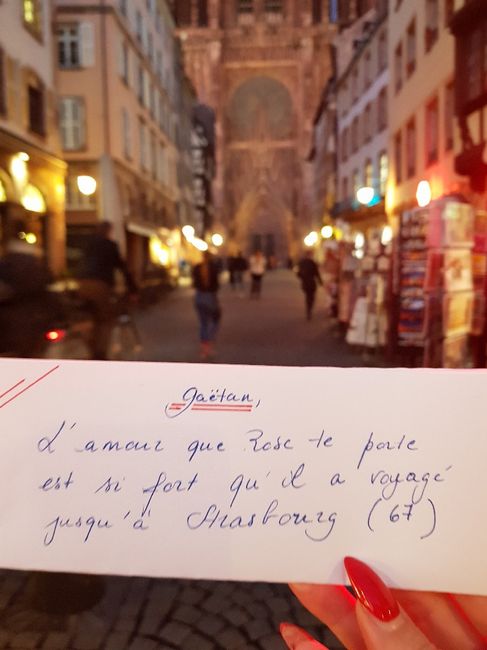 Gaëtan,
L'amour que Rose te porte
est si fort qu'il a voyagé
jusqu'à Strasbourg (67)